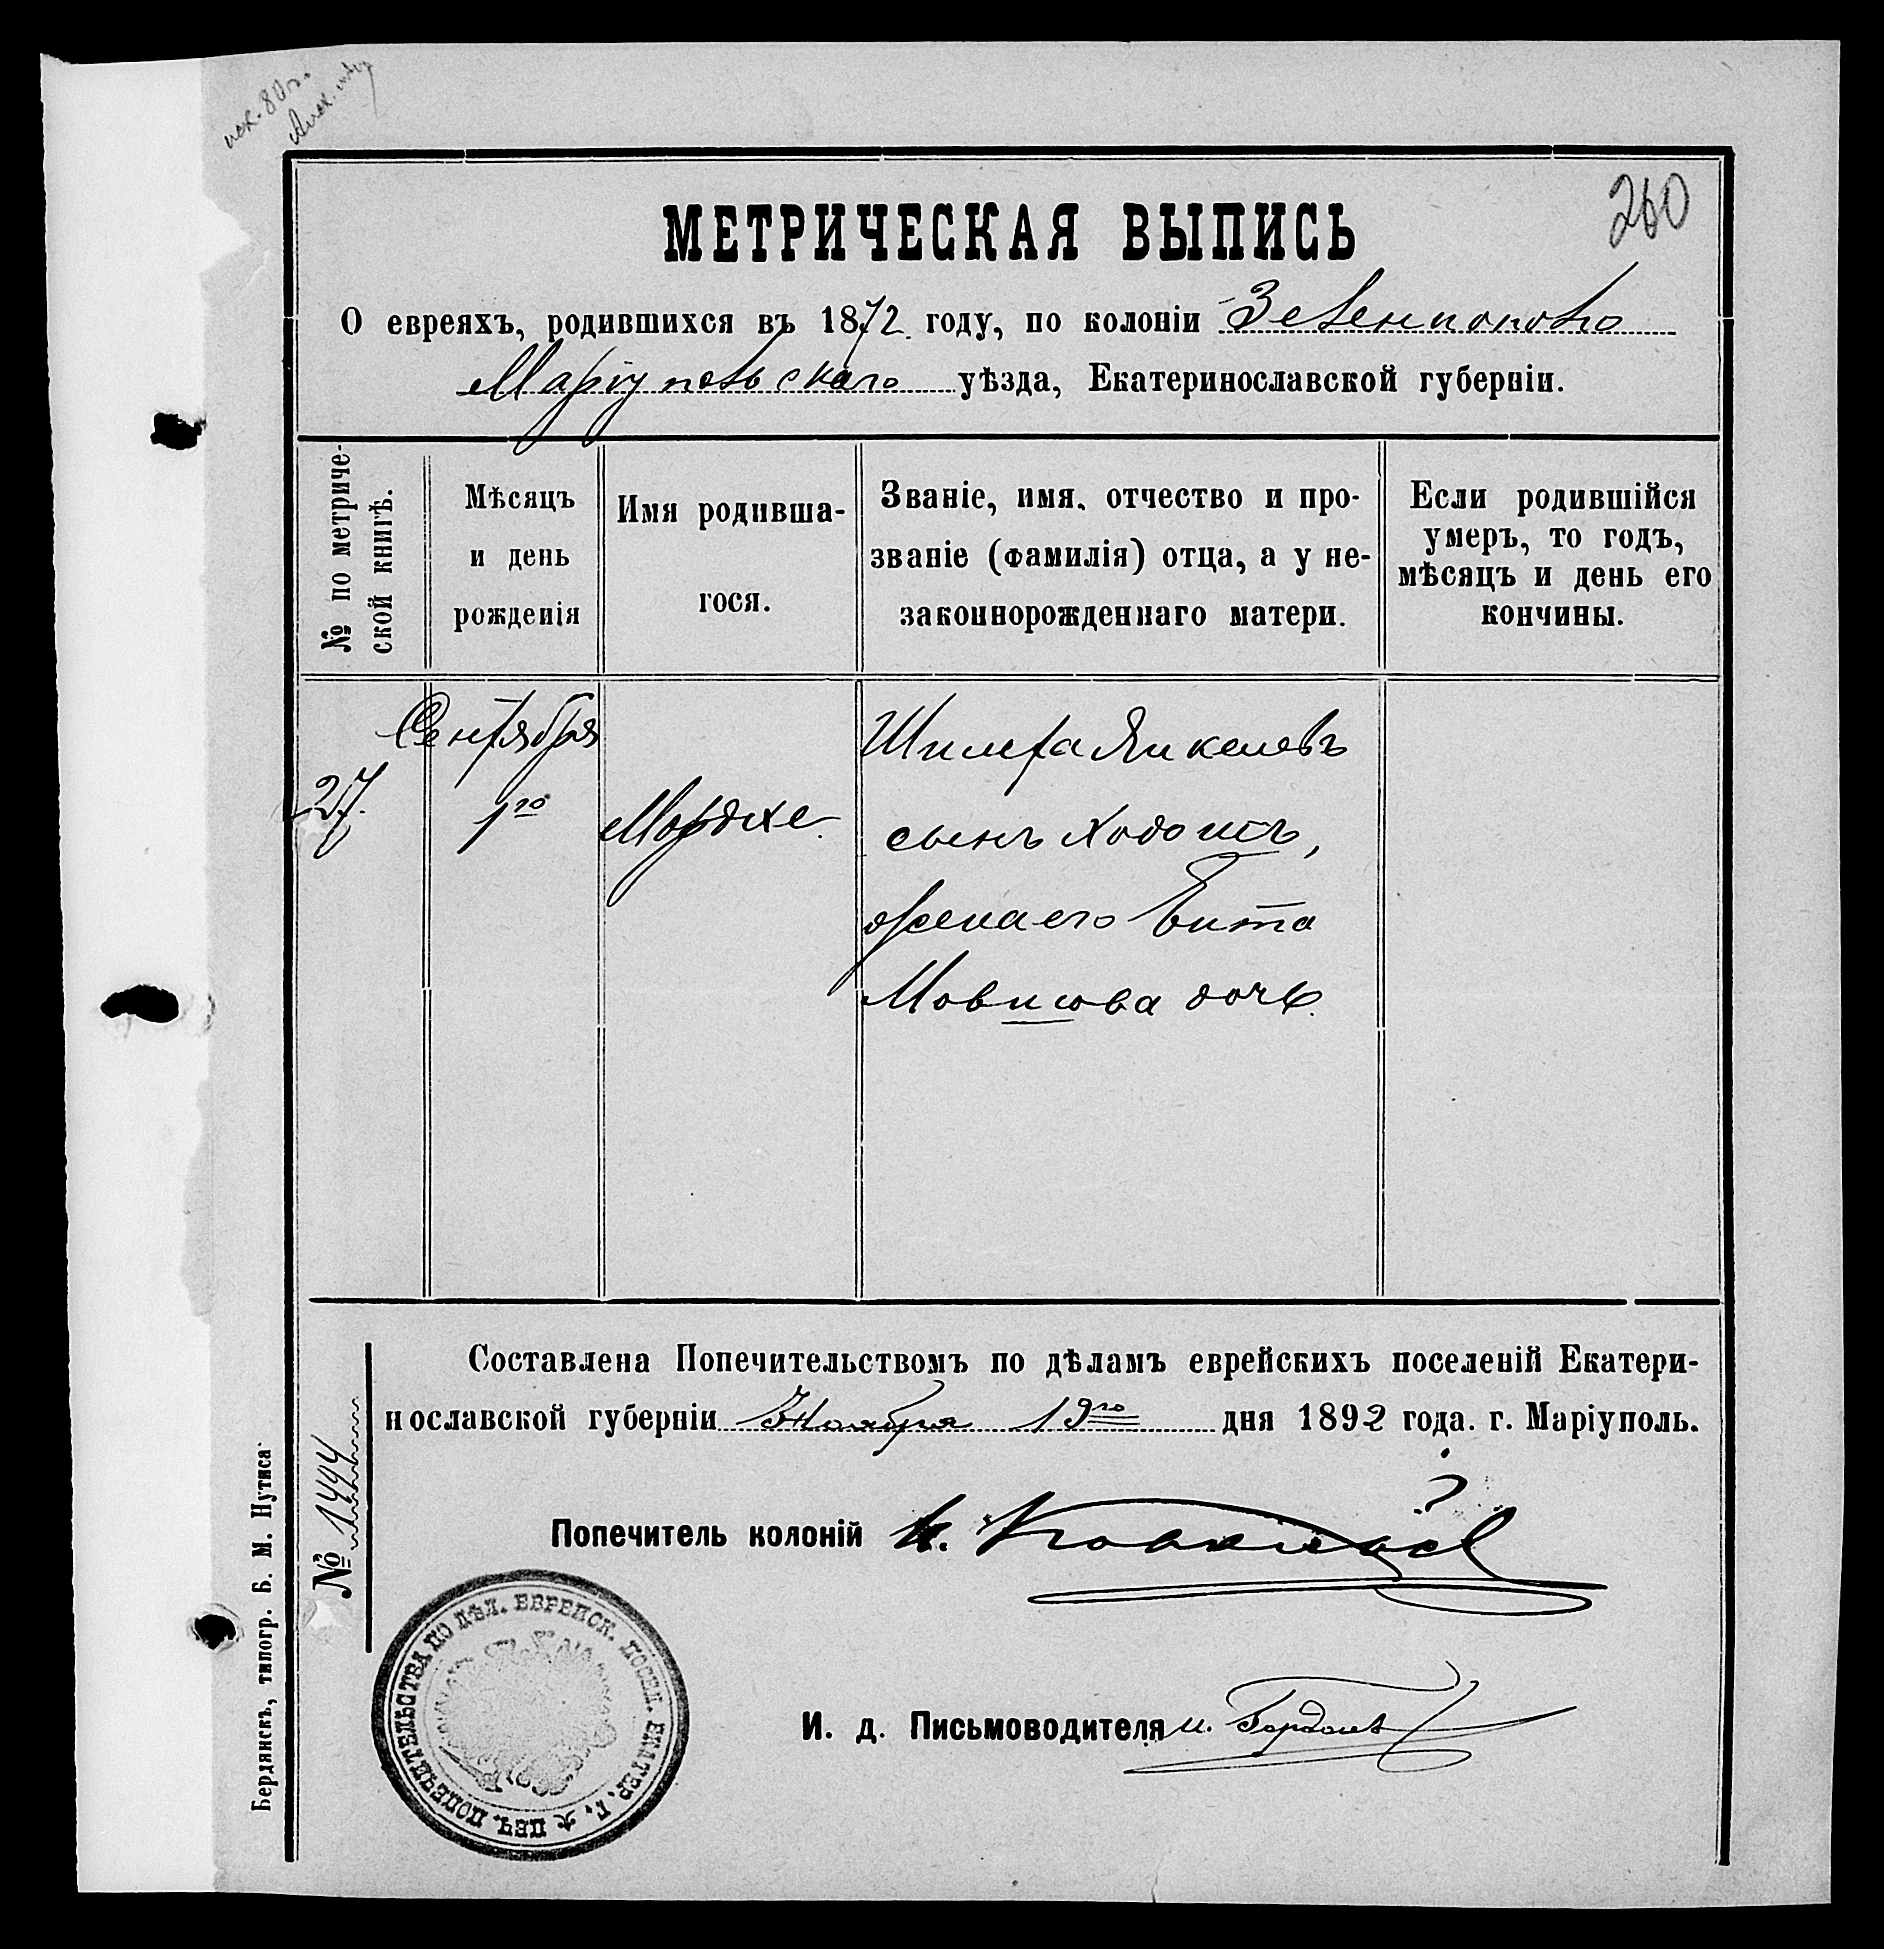 260
МЕТРИЧЕСКАЯ ВЫПИСЬ
О евреяхъ, родившихся въ 1872 году, по колоніи Зеленополь
Маріупольскаго уѣзда, Екатеринославской губерніи.
№ по метриче-
ской книгѣ.
Мѣсяцъ
и день
рожденія
Имя родивша-
гося.
Званіе, имя, отчество и про-
званіе (фамилія) отца, а у не-
законнорожденнаго матери.
Если родившійся
умеръ, то годъ,
мѣсяцъ и день его
кончины.
27.
Сентября
1го
Мордхе.
Шмера Янкелевъ
сынъ Ходошъ,
жена его Гита
Мовшова дочь.
Составлена Попечительствомъ по дѣламъ еврейскихъ поселеній Екатери-
нославской губерніи Ноября 19го дня 1892 года. г. Маріуполь.
№ 1494
Попечитель колоній И.
И. д. Письмоводителя И. Гордонъ
ПЕЧ. ПОПЕЧИТЕЛЬСТВА ПО ДѢЛ. ЕВРЕЙСК. ПОСЕЛ. ЕКАТЕР. Г.
Бердянскъ, типогр. Б. М. Нутиса